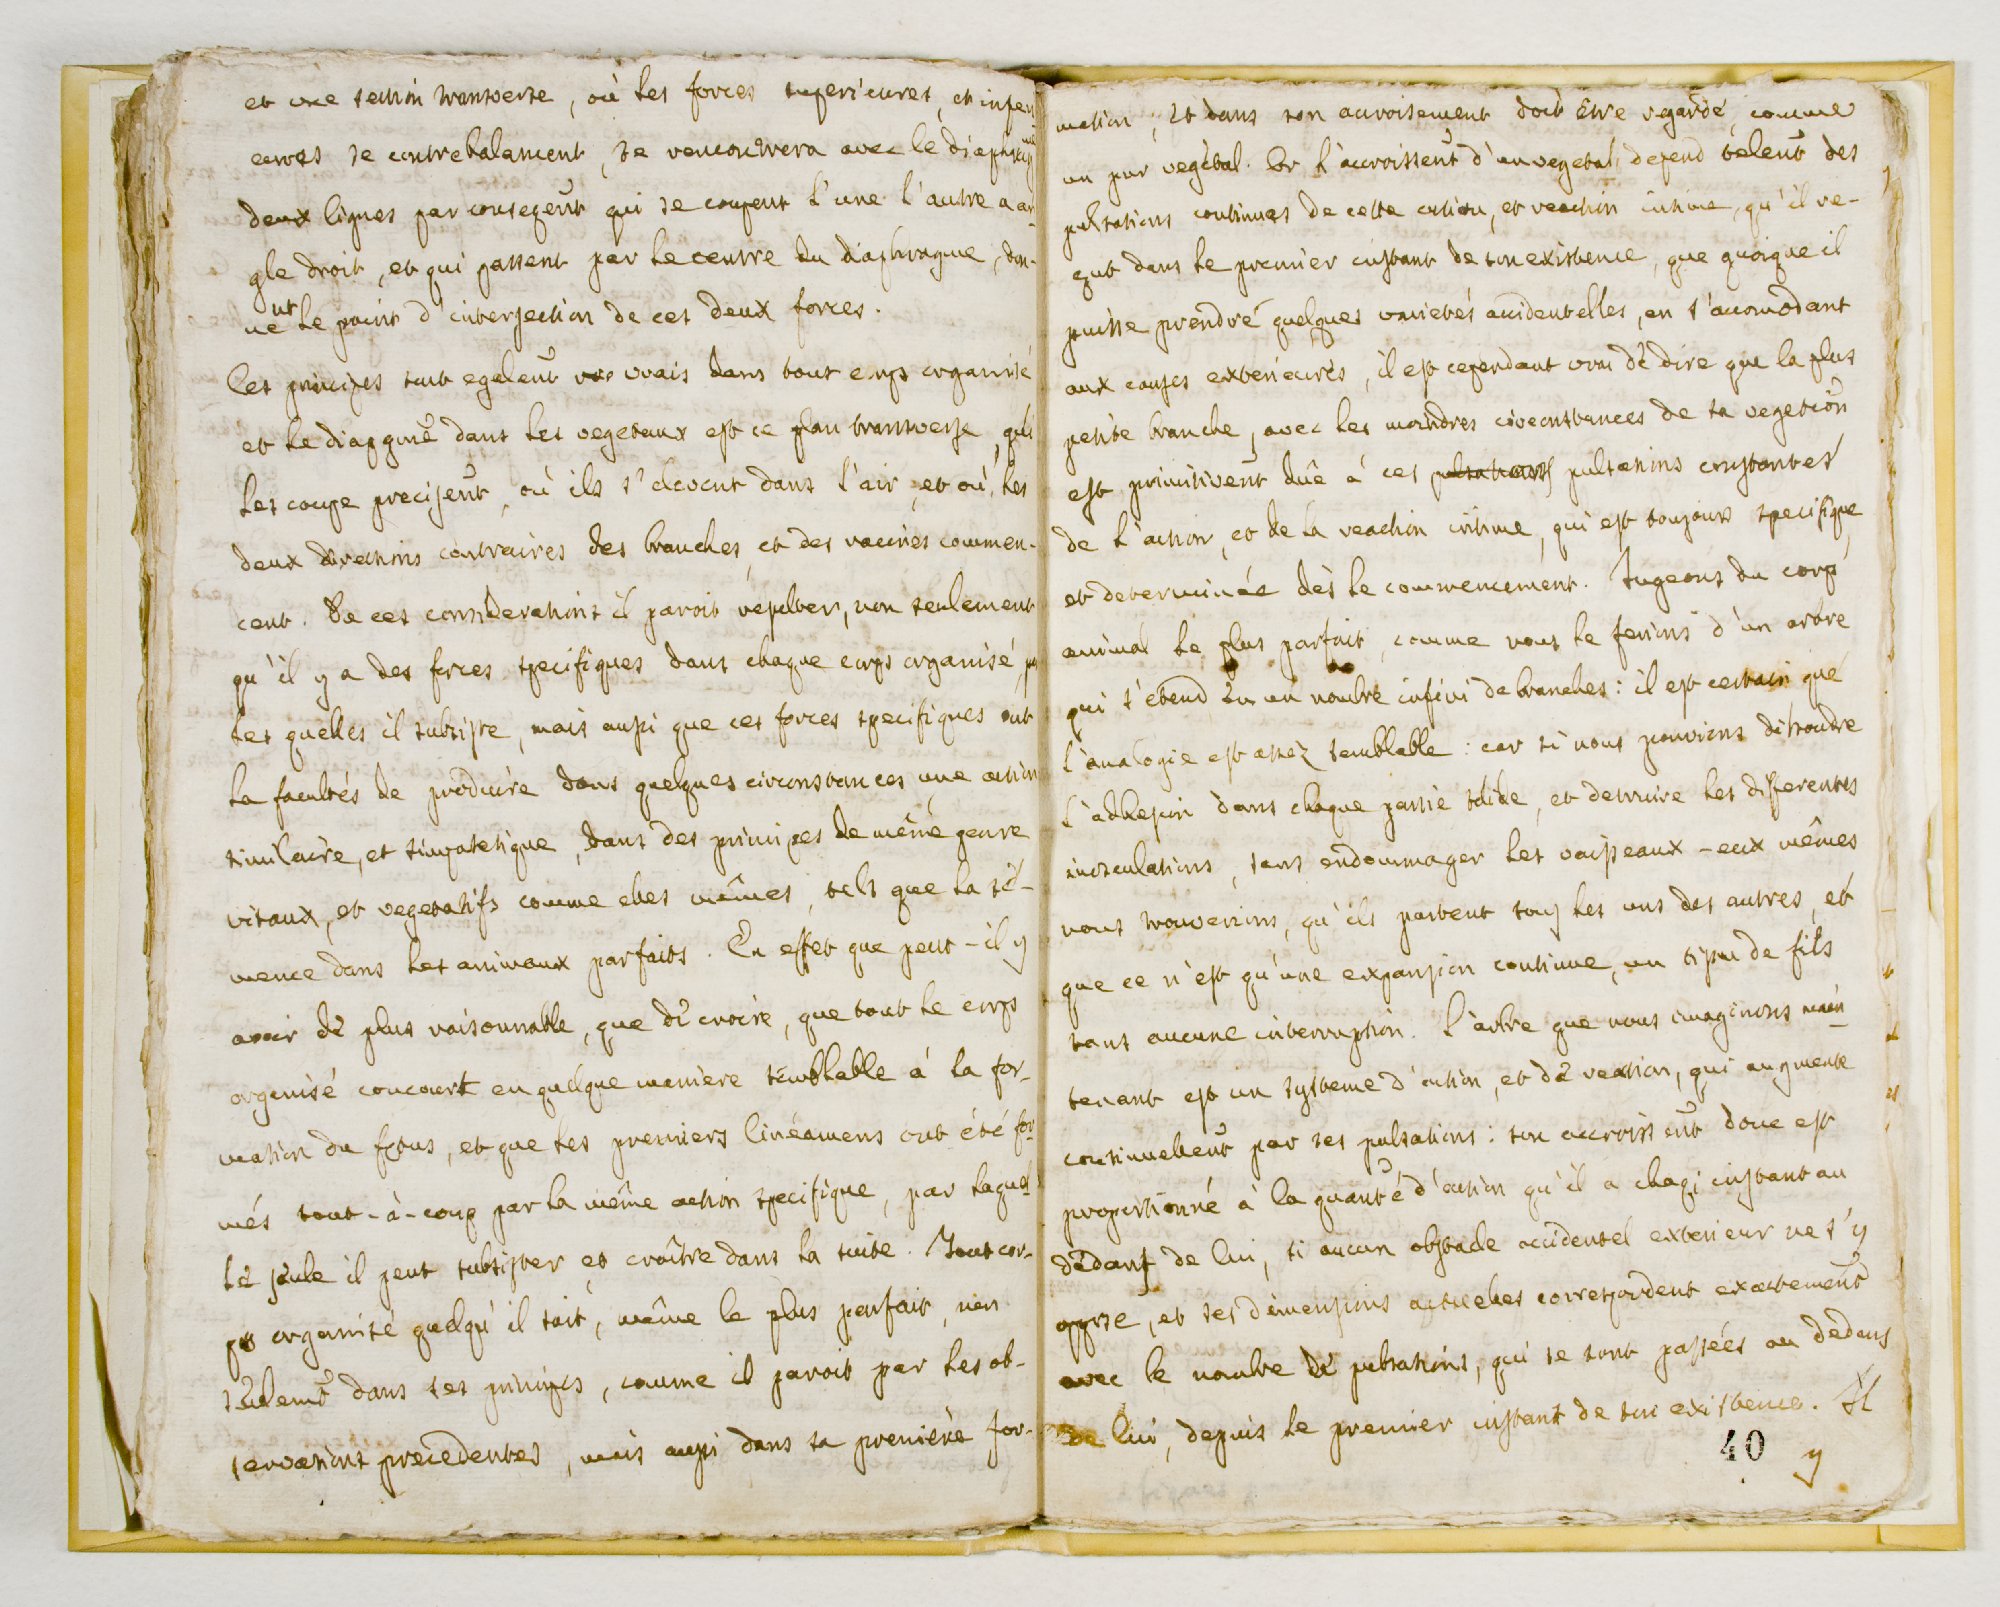 et une section transverse, où les forces superieures, et inferi
eures se contrebalancent, se rencontrera avec le diaphragme
deux lignes par conseqent qui se coupent l'une l'autre a an-
gle droit, et qui passent par le centre du diaphragme, don-
nent le point d'intersection de ces deux forces.
Ces principes sont egalemt vrais dans tout corps organisé
et le diaphgme dans les vegetaux est ce plan transverse, qui
les coupe precisemt, où ils s'elevent dans l'air, et où les
deux directions contraires des branches, et des racines commen-
cent. De ces considerations il paroit resulter, non seulement
qu'il y a des forces specifiques dans chaque corps organisé par
les quelles il subsiste, mais aussi que ces forces specifiques ont
la facultés de produire dans quelques circonstances une action
similaire, et simpatetique, dans des principes de même genre
vitaux, et vegetatifs comme elles mêmes, tels que la sé-
mence dans les animaux parfaits. En effet que peut-il y
avoir de plus raisonnable, que de croire, que tout le corps
organisé concourt en quelque maniere semblable à la for-
mation du fœtus, et que les premiers linéamens ont été for
més tout-à-coup par la même action specifique, par laquel
le seule il peut subsister et croître dans la suite. Tout cor-
ps organisé quelqu'il soit, même le plus parfait, non
seulemt dans ses principes, comme il paroit par les ob-
servations precedentes, mais aussi dans sa première for-
mation, et dans son accroisement doit être regardé, comme
un pur vegétal. Or l'accroissemt d'un vegetal depend telemt des
pulsations continues de cette action, et reaction intime, qu'il re-
çut dans le premier instant de son existence, que quoique il
puisse prendre quelques varietés accidentelles, en s'acomodant
aux causes exterieures, il est cependant vrai de dire que la plus
petite branche, avec les moindres circonstances de sa vegetion
est primitivemt dûe à ces pulsations pulsations constantes
de l'action, et de la reaction intime, qui est toujours specifique,
et determinée dès le commencement. Jugeons du corps
animal le plus parfait, comme nous le ferions d'un arbre
qui s'étend en un nombre infini de branches: il est certain que
l'analogie est assez semblable: car si nous pouvions dissoudre
l'adhesion dans chaque partie solide, et detruire les differentes
inosculations, sans endommager les vaisseaux-eux mêmes
nous trouverions, qu'ils partent tous les uns des autres, et
que ce n'est qu'une expansion continue, un tissu de fils
sans aucune interruption. L'arbre que nous imaginons main
tenant est un systeme d'action, et de reaction, qui augmente
continuellemt par ses pulsations: son accroissemt donc est
proportionné à la quantté d'action qu'il a chaq; instant au
dedans de lui, si aucun obstacle accidentel exterieur ne s'y
oppose, et ses dimensions actuelles correspondent exactement
avec le nombre de pulsations, qui se sont passées au dedans
de lui, depuis le premier instant de son existence. Il
40 y